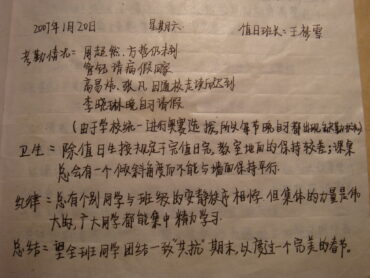 2007年1月20日 星期六 值日班长:王梦雪
考勤情况:周超然、方哲仍未到
请病假回家
高昌伟、张凡因返校走读而迟到
李晓琳晚自习请假
(由于学校统一进行奥赛选拔,所以每节晚自习都出现
卫生:除值日生按规定于完值日完,教室地面的保持较差;课桌
总会有一个倾斜角度而不能与墙面保持平行.
纪律:总有个别同学与班级的安静秩序相悖.但集体的力量是伟
大的,广大同学都能集中精力学习.
总结:望全班同学团结一致"共抗"期末,以度过一个完美的春节。